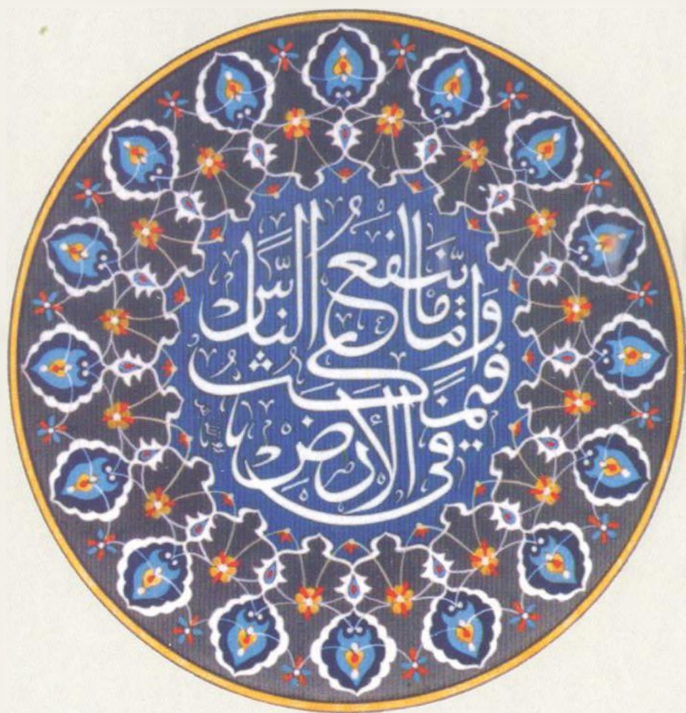 وَأَمَّا مَا يَنفَعُ النَّاسَ
فَيَمْكُثُ
فِي الْأَرْضِ